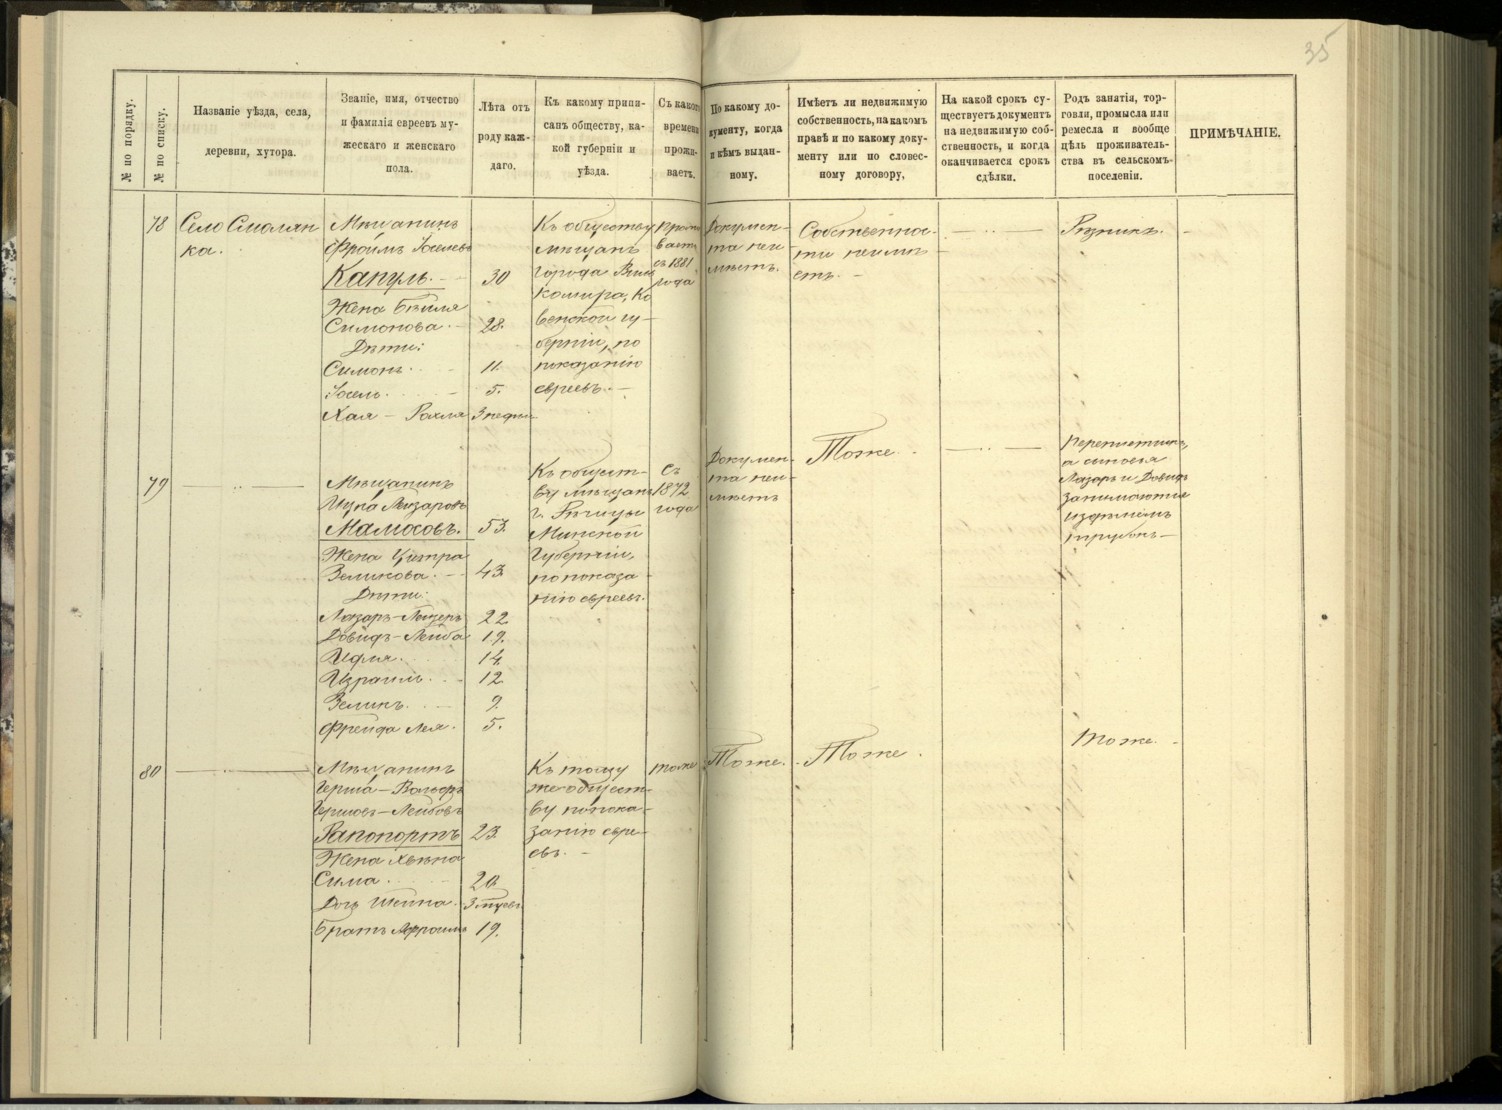 35
№ по порядку.
№ по списку.
Названіе уѣзда, села,
деревни, хутора.
Званіе, имя, отчество
и фамилія евреевъ му-
жескаго и женскаго
пола.
Лѣта отъ
роду каж-
даго.
Къ какому припи-
санъ обществу, ка-
кой губерніи и
уѣзда.
Съ какого
времени
прожи-
ваетъ.
По какому до-
кументу, когда
и кѣмъ выдан-
ному.
Имѣетъ ли недвижимую
собственность, на какомъ
правѣ и по какому доку-
менту или по словес-
ному договору,
На какой срокъ су-
ществуетъ документъ
на недвижимую соб-
ственность, и когда
оканчивается срокъ
сдѣлки.
Родъ занятія, тор-
говли, промысла или
ремесла и вообще
цѣль проживатель-
ства въ сельскомъ
поселеніи.
ПРИМѢЧАНІЕ.
78
Село Смолян
ка.
Мѣщанинъ
Фроимъ Іоселевъ
Капуль. -
Жена Бейля
Симонова. -
Дѣти:
Симонъ. -
Іосель. -
Хая - Рохля
30
28.
11.
5.
3 недѣли
Къ обществу
мѣщанъ
города Виль
комира, Ко
венской гу-
берніи, по
показанію
евреевъ. -
Прожи
ваетъ
съ 1881
года
Докумен-
та неи-
мѣетъ.
Собственнос-
ти неимѣ-
етъ. -
— ·· —
Рѣзникъ.
-
79
— ·· —
Мѣщанинъ
Лейзаровъ
Мамосовъ.
Жена
Зеликова. -
Дѣти:
Лазарь-Лейзеръ
Довидъ-Лейба
Израиль. -
Зеликъ. -
Фрейда Лея.
53.
43.
22
19.
14.
12
9.
5.
Къ общест-
ву мѣщанъ
г. Рѣчицы
Минской
Губерніи,
по показа-
нію евреевъ.
Съ
1872
года
Докумен-
та неи-
мѣетъ
Тоже.
— ·· —
Переплетчикъ,
а сыновья
Лазарь и Довидъ
занимаются
издѣліемъ
трубокъ —
80
—
Мѣщанинъ
Герша - Вольфъ
Гершовъ - Лейбовъ
Рапопортъ
Жена
Сима. -
Дочь Шейна.
Братъ Афроимъ
23.
20.
19.
Къ тому
же общест-
ву по пока-
занію евре-
евъ. -
тоже
Тоже.
Тоже.
Тоже. -